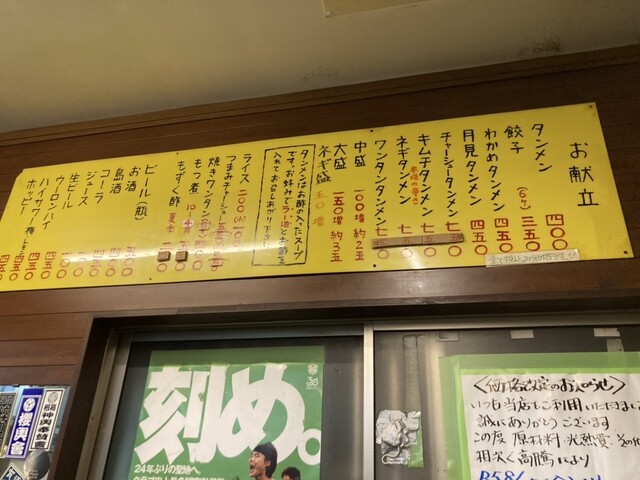 お献立
タンメン 四〇〇
餃子(6ケ) 三五〇
わかめタンメン 四五〇
月見タンメン 四五〇
チャーシュータンメン 七五〇
キムチタンメン 七五〇
ネギタンメン 七五〇
ワンタンタンメン 七五〇
中盛 一〇〇増 約2玉
大盛 一五〇増 約3玉
ネギ盛 五〇増
タンメンはお酢の入ったスープ
です。お好みでラー油
入れてお召しあがり下さい
ライス 二〇〇
つまみチャーシュー
焼きワンタン
もつ煮
もずく酢
ビール(瓶)
お酒
島酒
コーラ
ジュース
生ビール
ウーロンハイ
ハイサワー
ホッピー
刻め。
24年ぶりの聖地へ。
神輿
櫻輿會
<価格改定のお知らせ>
いつも当店をご利用いただきまして
誠にありがとうございます
この度 原材料・光熱費・その他
相次ぐ高騰により